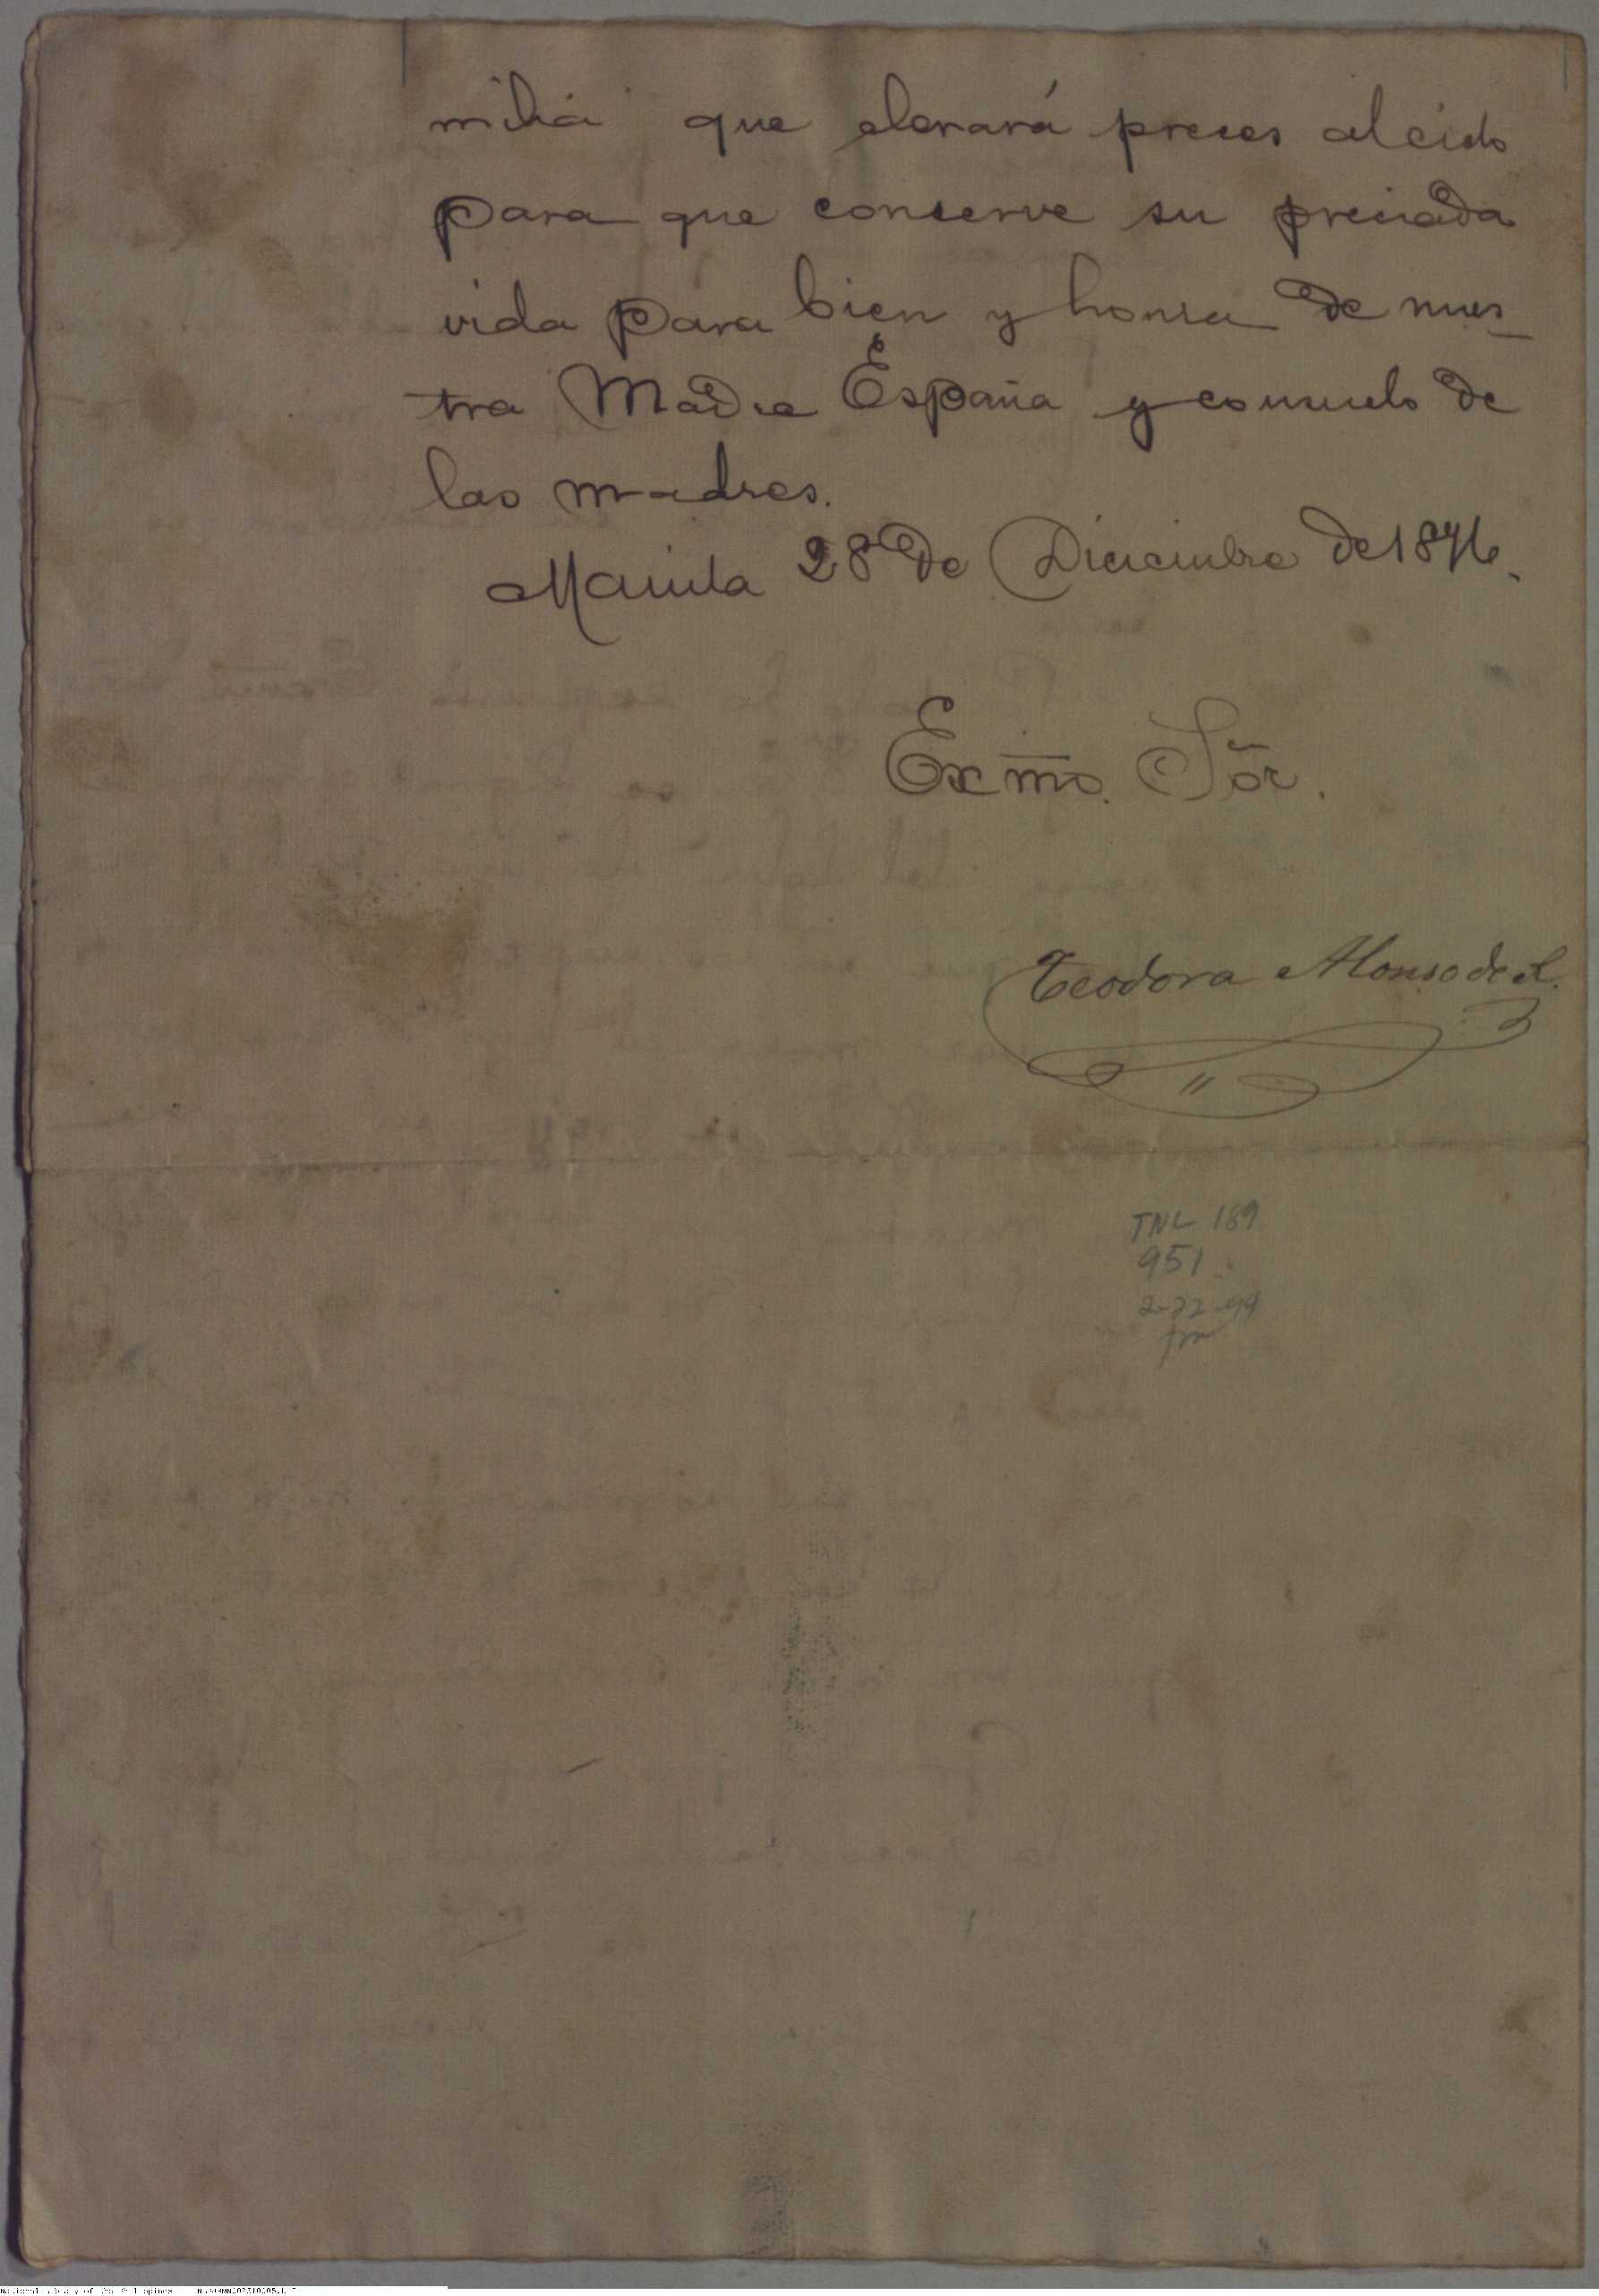 milia que elevará preces al cielo
para que conserve su preciada
vida para bien y honra de nues-
tra Madre España y consuelo de
las madres.
Manila 28 de Diciembre de 1896.
Exmo. Sõr.
Teodora Alonso de R.
TNL 189
951
2-22-94
National Library of the Philippines